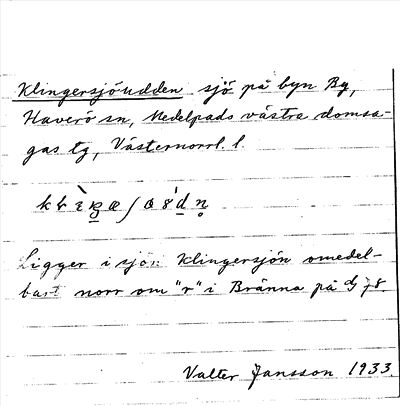 Klingersjöudden sjö på byn By,
Haverö sn, Medelpads västra domsa-
gas tg, Västernorrl. l.
Ligger i sjön Klingersjön omedel-
bart norr om "r" i Bränna på G 78.
Valter Jansson 1933.